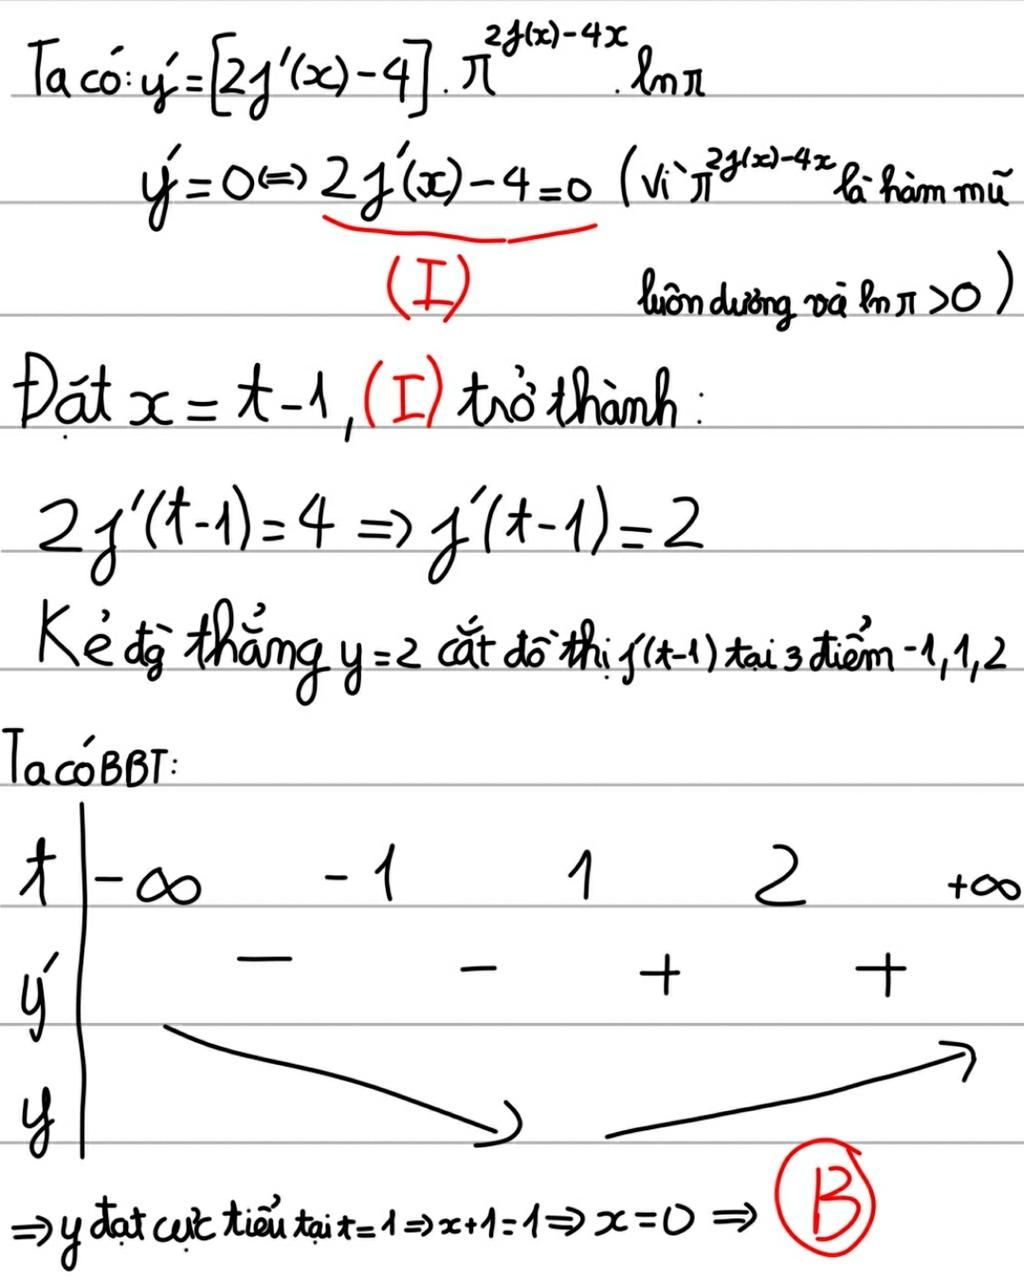 Ta có: y' = [2f'(x) - 4] . π^{2f(x) - 4x} . ln π
y' = 0 <=> 2f'(x) - 4 = 0 (vì π^{2f(x) - 4x} là hàm mũ
(I) luôn dương và ln π > 0)
Đặt x = t - 1, (I) trở thành:
2f'(t-1) = 4 => f'(t-1) = 2
Kẻ đg thẳng y = 2 cắt đồ thị f'(t-1) tại 3 điểm -1, 1, 2
Ta có BBT:
t -∞ -1 1 2 +∞
y' - - + +
y
=> y đạt cực tiểu tại t = 1 => x + 1 = 1 => x = 0 => B